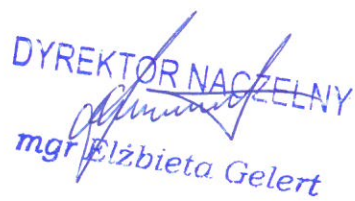 DYREKTOR NACZELNY
mgr Elżbieta Gelert